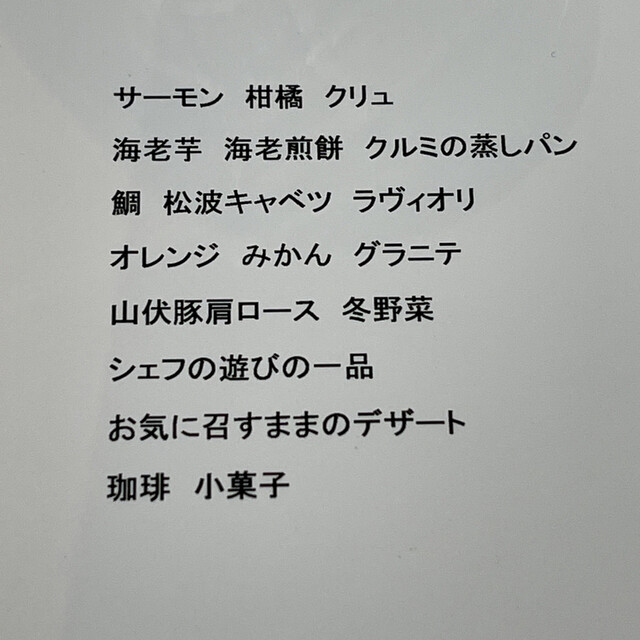 サーモン 柑橘 クリュ
海老芋 海老煎餅 クルミの蒸しパン
鯛 松波キャベツ ラヴィオリ
オレンジ みかん グラニテ
山伏豚肩ロース 冬野菜
シェフの遊びの一品
お気に召すままのデザート
珈琲 小菓子